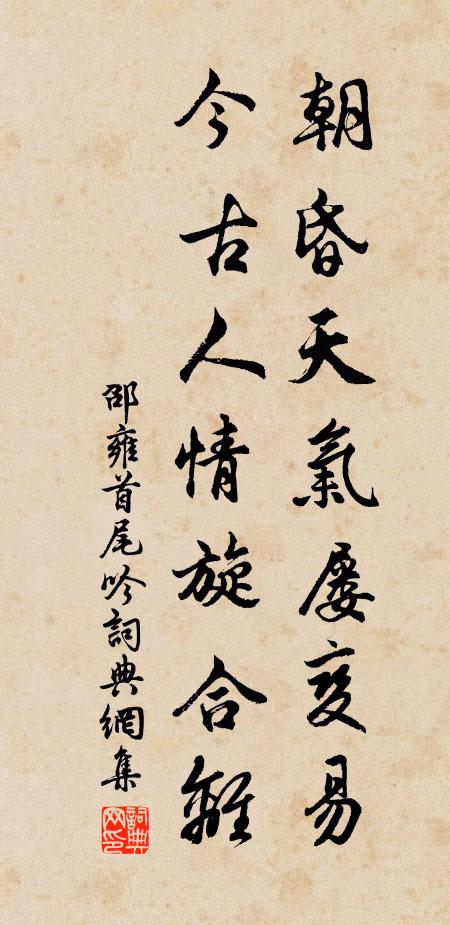 朝昏天氣屡变易
今古人情旋合離
邵雍首尾吟詞典網集
詞典网印